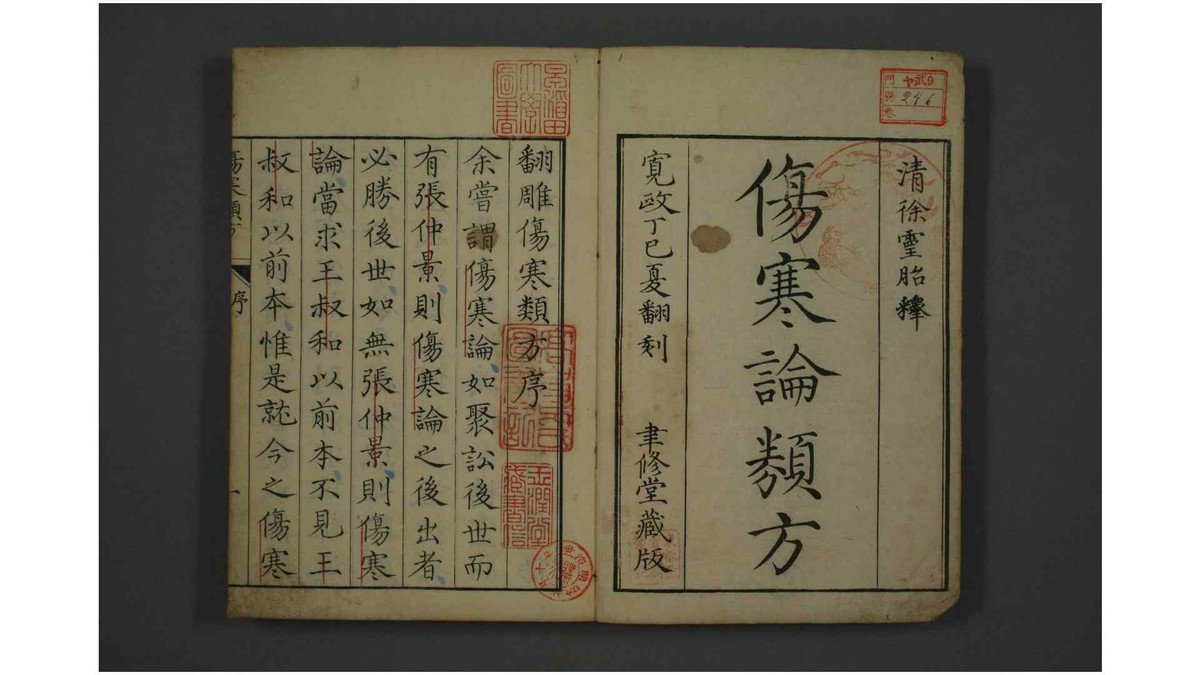 清徐靈胎釋
傷寒論類方
寛政丁巳夏翻刻 聿修堂藏版
翻雕傷寒類方序
余嘗謂傷寒論如聚訟後世而
有張仲景則傷寒論之後出者
必勝後世如無張仲景則傷寒
論當求王叔和以前本不見王
叔和以前本惟是就今之傷寒
傷寒類方
序
一
246
圖書
玉潤堂